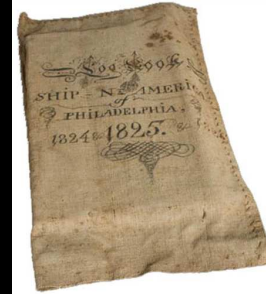 Log Book
SHIP - N AMERIC
of
PHILADELPHIA.
1824 & 1825.